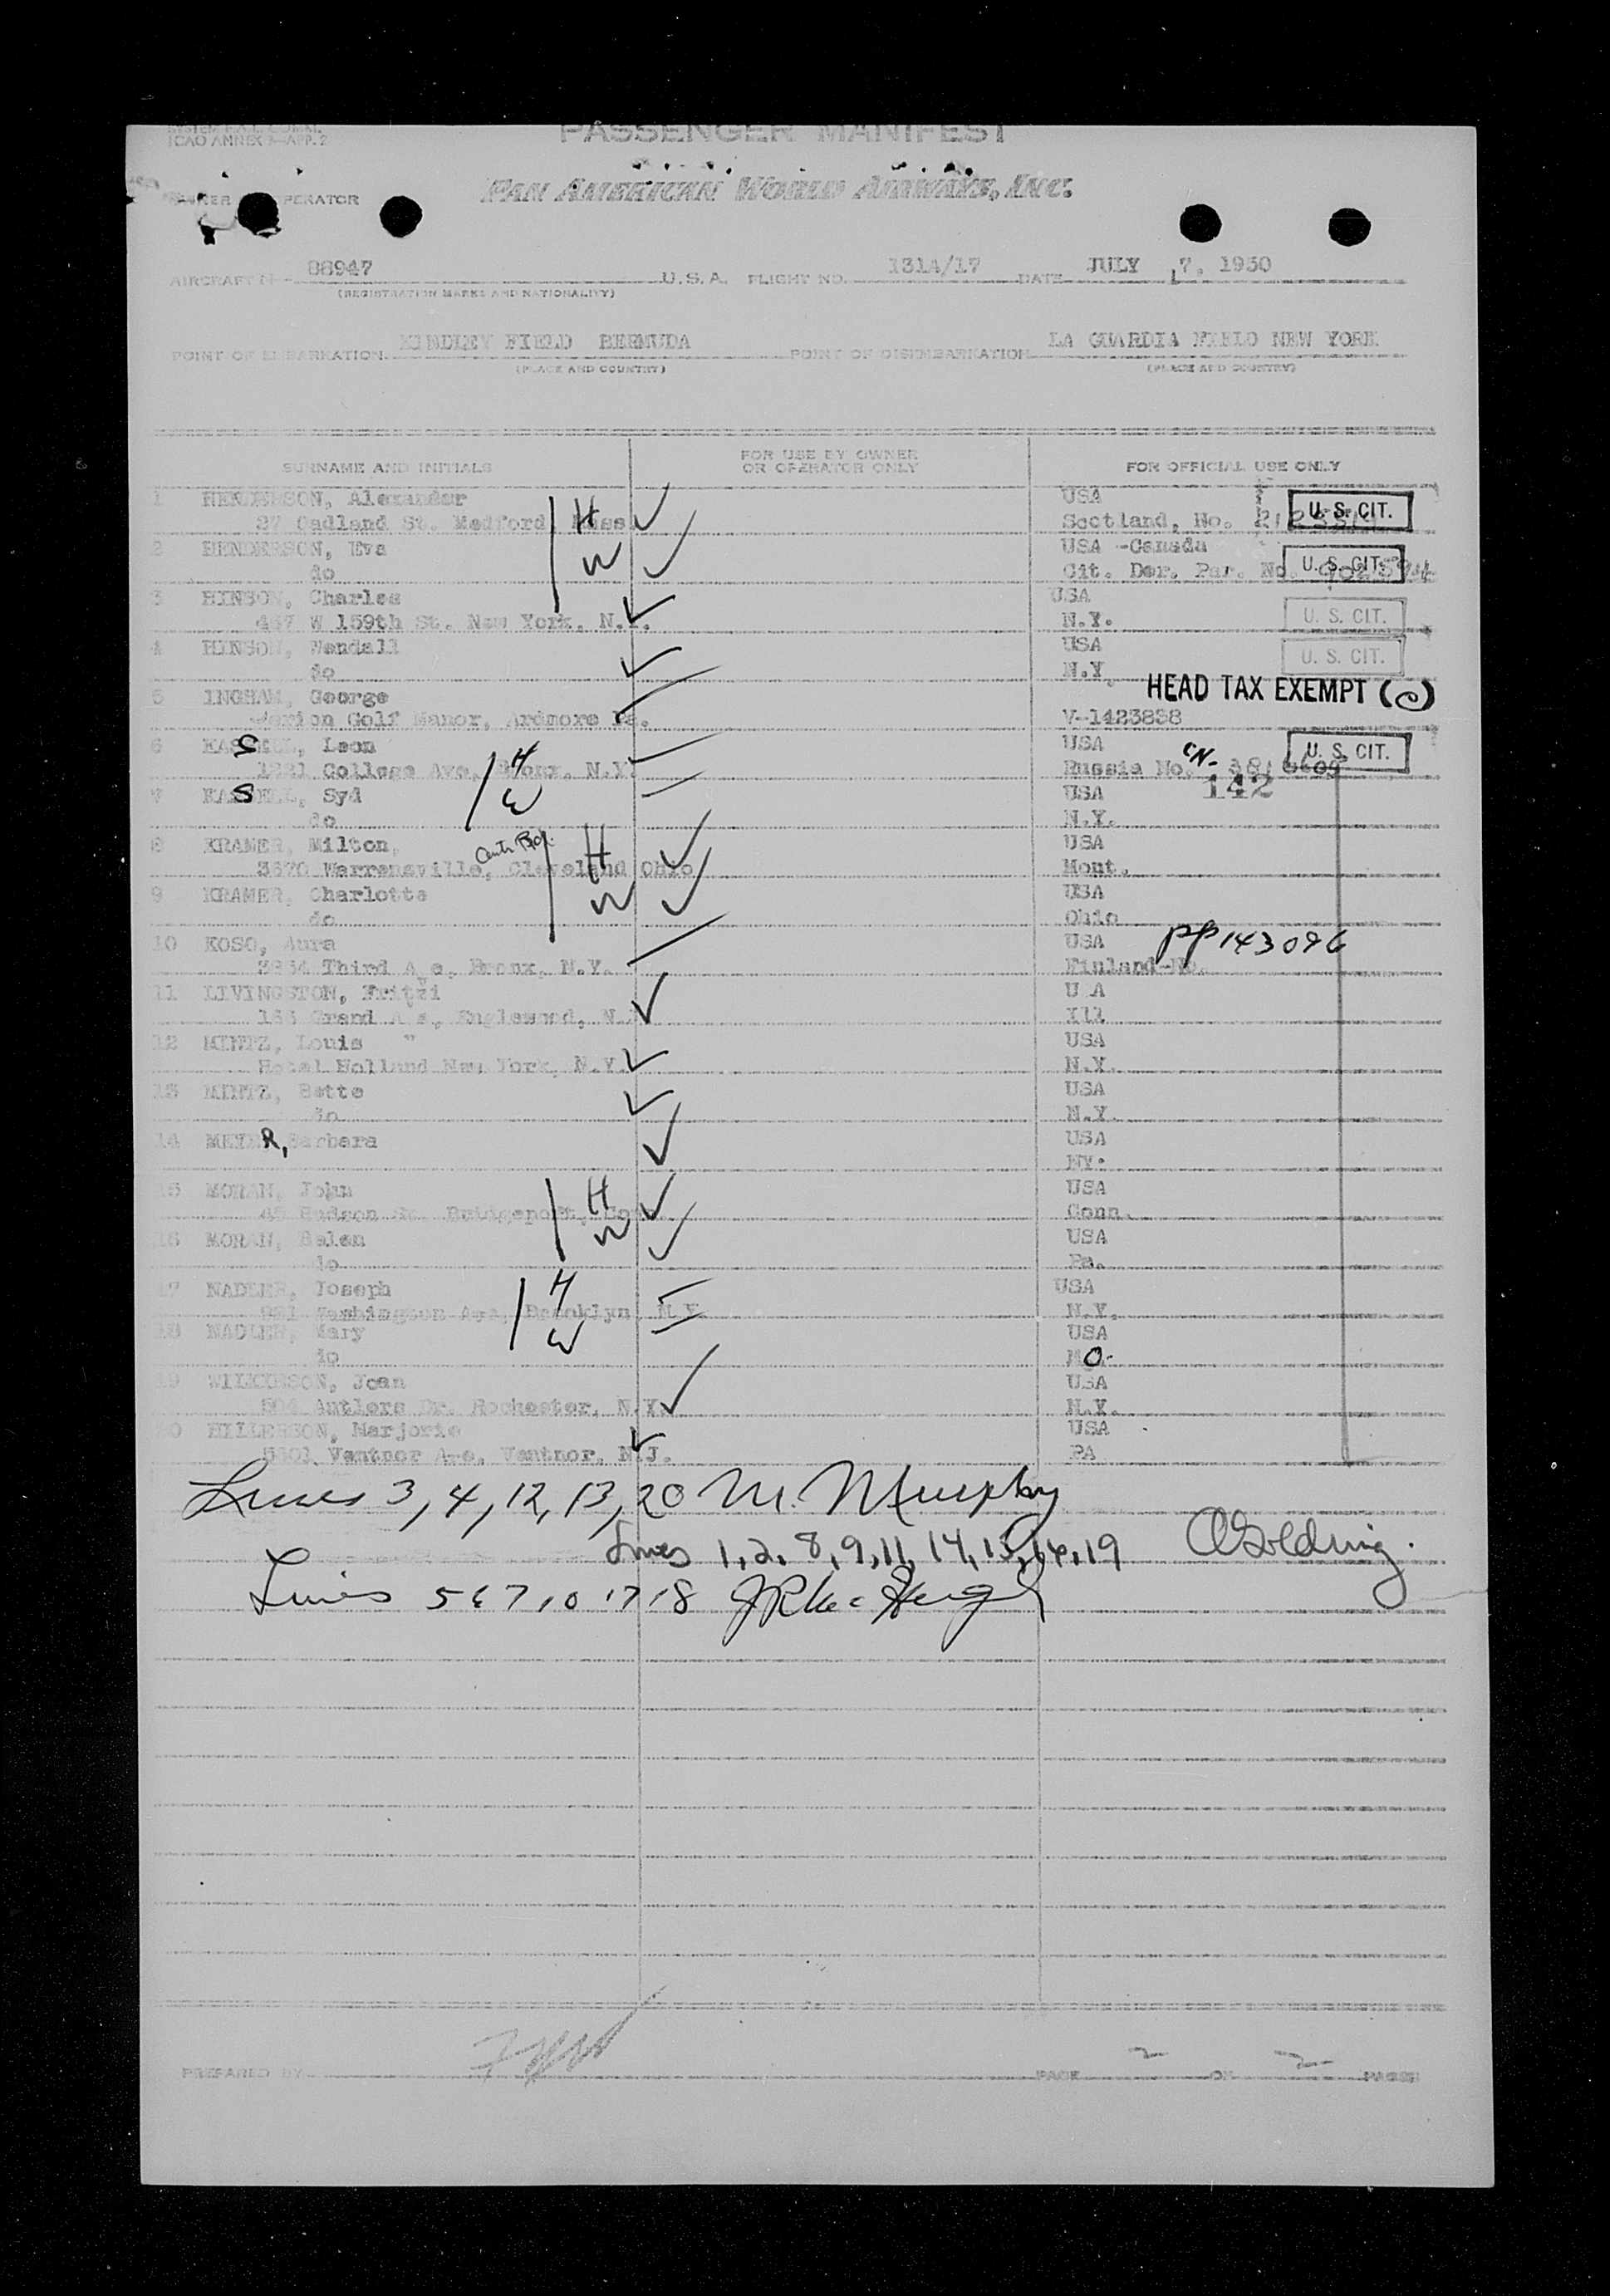 ICAO ANNEX 9-APP. 2
PASSENGER MANIFEST
PAN AMERICAN WORLD AIRWAYS, INC.
AIRCRAFT N- 88947 U.S.A. FLIGHT NO. 131A/17 DATE JULY 17, 1950
(REGISTRATION MARKS AND NATIONALITY)
POINT OF EMBARKATION KINDLEY FIELD BERMUDA POINT OF DISEMBARKATION LA GUARDIA FIELD NEW YORK
(PLACE AND COUNTRY) (PLACE AND COUNTRY)
SURNAME AND INITIALS FOR USE BY OWNER OR OPERATOR ONLY FOR OFFICIAL USE ONLY
1 HENDERSON, Alexander H USA
27 Oadland St. Medford, Mass Scotland, No. U. S. CIT.
2 HENDERSON, Eva W USA -Canada
do Cit. Der. Par. No. U. S. CIT.
3 HINSON, Charles USA
467 W 159th St. New York, N.Y. N.Y. U. S. CIT.
4 HINSON, Wendall USA
do N.Y. U. S. CIT.
5 INGHAM, George HEAD TAX EXEMPT (C)
Golf Manor, Ardmore Pa. V-1423838
6 Leon H USA U. S. CIT.
College Ave, Bronx, N.Y. Russia No. CN-
7 Syd W USA 142
do N.Y.
8 KRAMER, Milton, H USA
3670 Warrensville, Cleveland Ohio Mont.
9 KRAMER, Charlotte W USA
do Ohio
10 KOSO, Aura USA PP 143096
Third Ave, Bronx, N.Y. Finland-No.
11 LIVINGSTON, Fritzi U A
Grand Ave, Englewood, N.J. Ill
12 MINTZ, Louis " USA
Hotel Holland New York, N.Y. N.Y.
13 MINTZ, Bette USA
do N.Y.
14 MEYER, Barbara USA
NY.
15 MORAN, John H USA
45 Hudson St. Bridgeport, Conn. Conn.
16 MORAN, Helen W USA
do Pa.
17 NADLER, Joseph H USA
Washington Ave, Brooklyn, N.Y. N.Y.
18 NADLER, Mary W USA
do MO.
19 WILKERSON, Joan USA
Antlers Dr. Rochester, N.Y. N.Y.
20 HILLERSON, Marjorie USA
5501 Ventnor Ave, Ventnor, N.J. PA
Lines 3, 4, 12, 13, 20 M. Murphy
Lines 1, 2, 8, 9, 11, 14, 15, 16, 19 Golding.
Lines 5 6 7 10 17 18
PREPARED BY PAGE 2 OF 2 PAGES